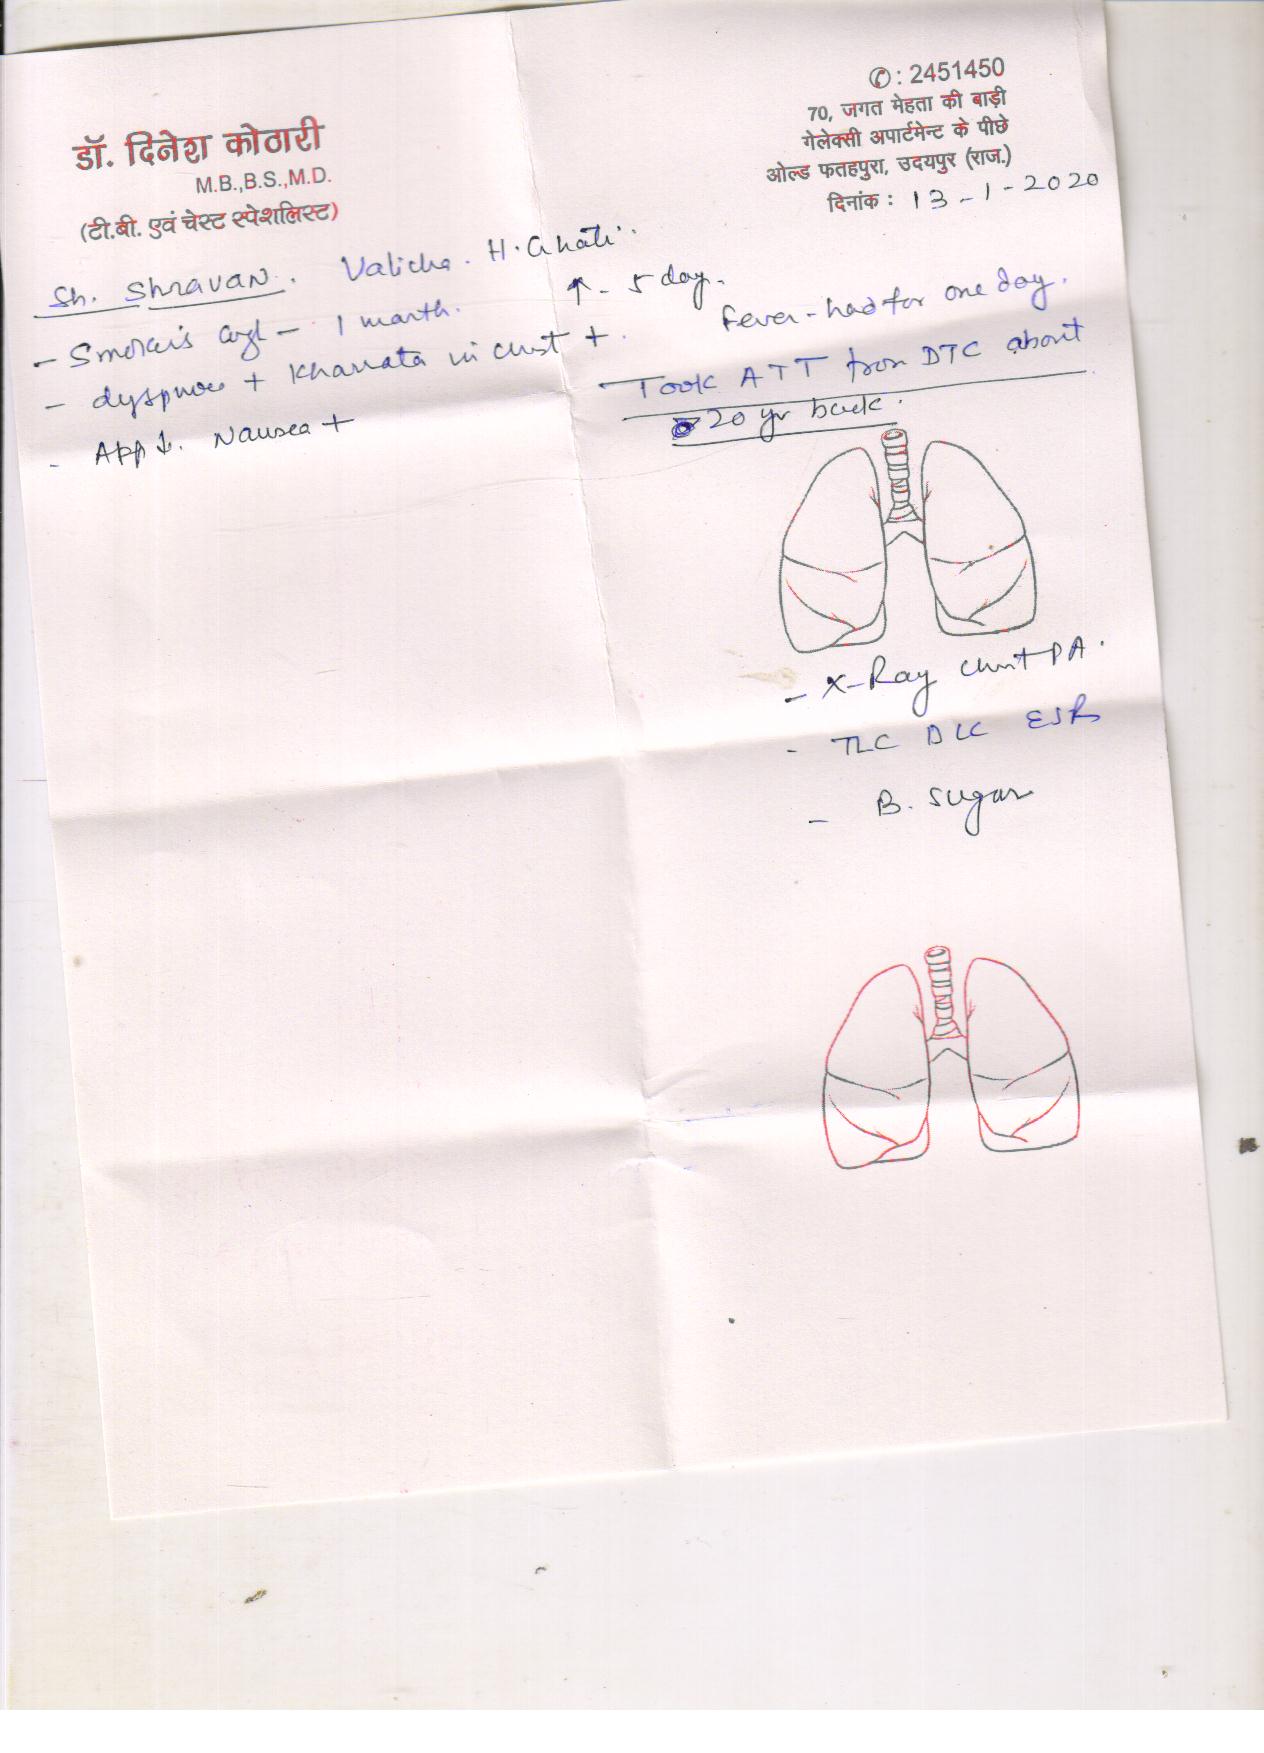 ✆ : 2451450
70, जगत मेहता की बाड़ी
गेलेक्सी अपार्टमेन्ट के पीछे
ओल्ड फतहपुरा, उदयपुर (राज.)
दिनांक : 13-1-2020
डॉ. दिनेश कोठारी
M.B.,B.S.,M.D.
(टी.बी. एवं चेस्ट स्पेशलिस्ट)
Sh. Shravan. Valicha. H. Ghati.
- Smokers - 1 month. ↑ - 5 day. Fever - had for one day.
- dyspnoea + Kharrata in chest +. Took ATT from DTC about
20 yr back.
- App ↓. Nausea +
- X-Ray chest PA.
- TLC DLC ESR
- B. sugar